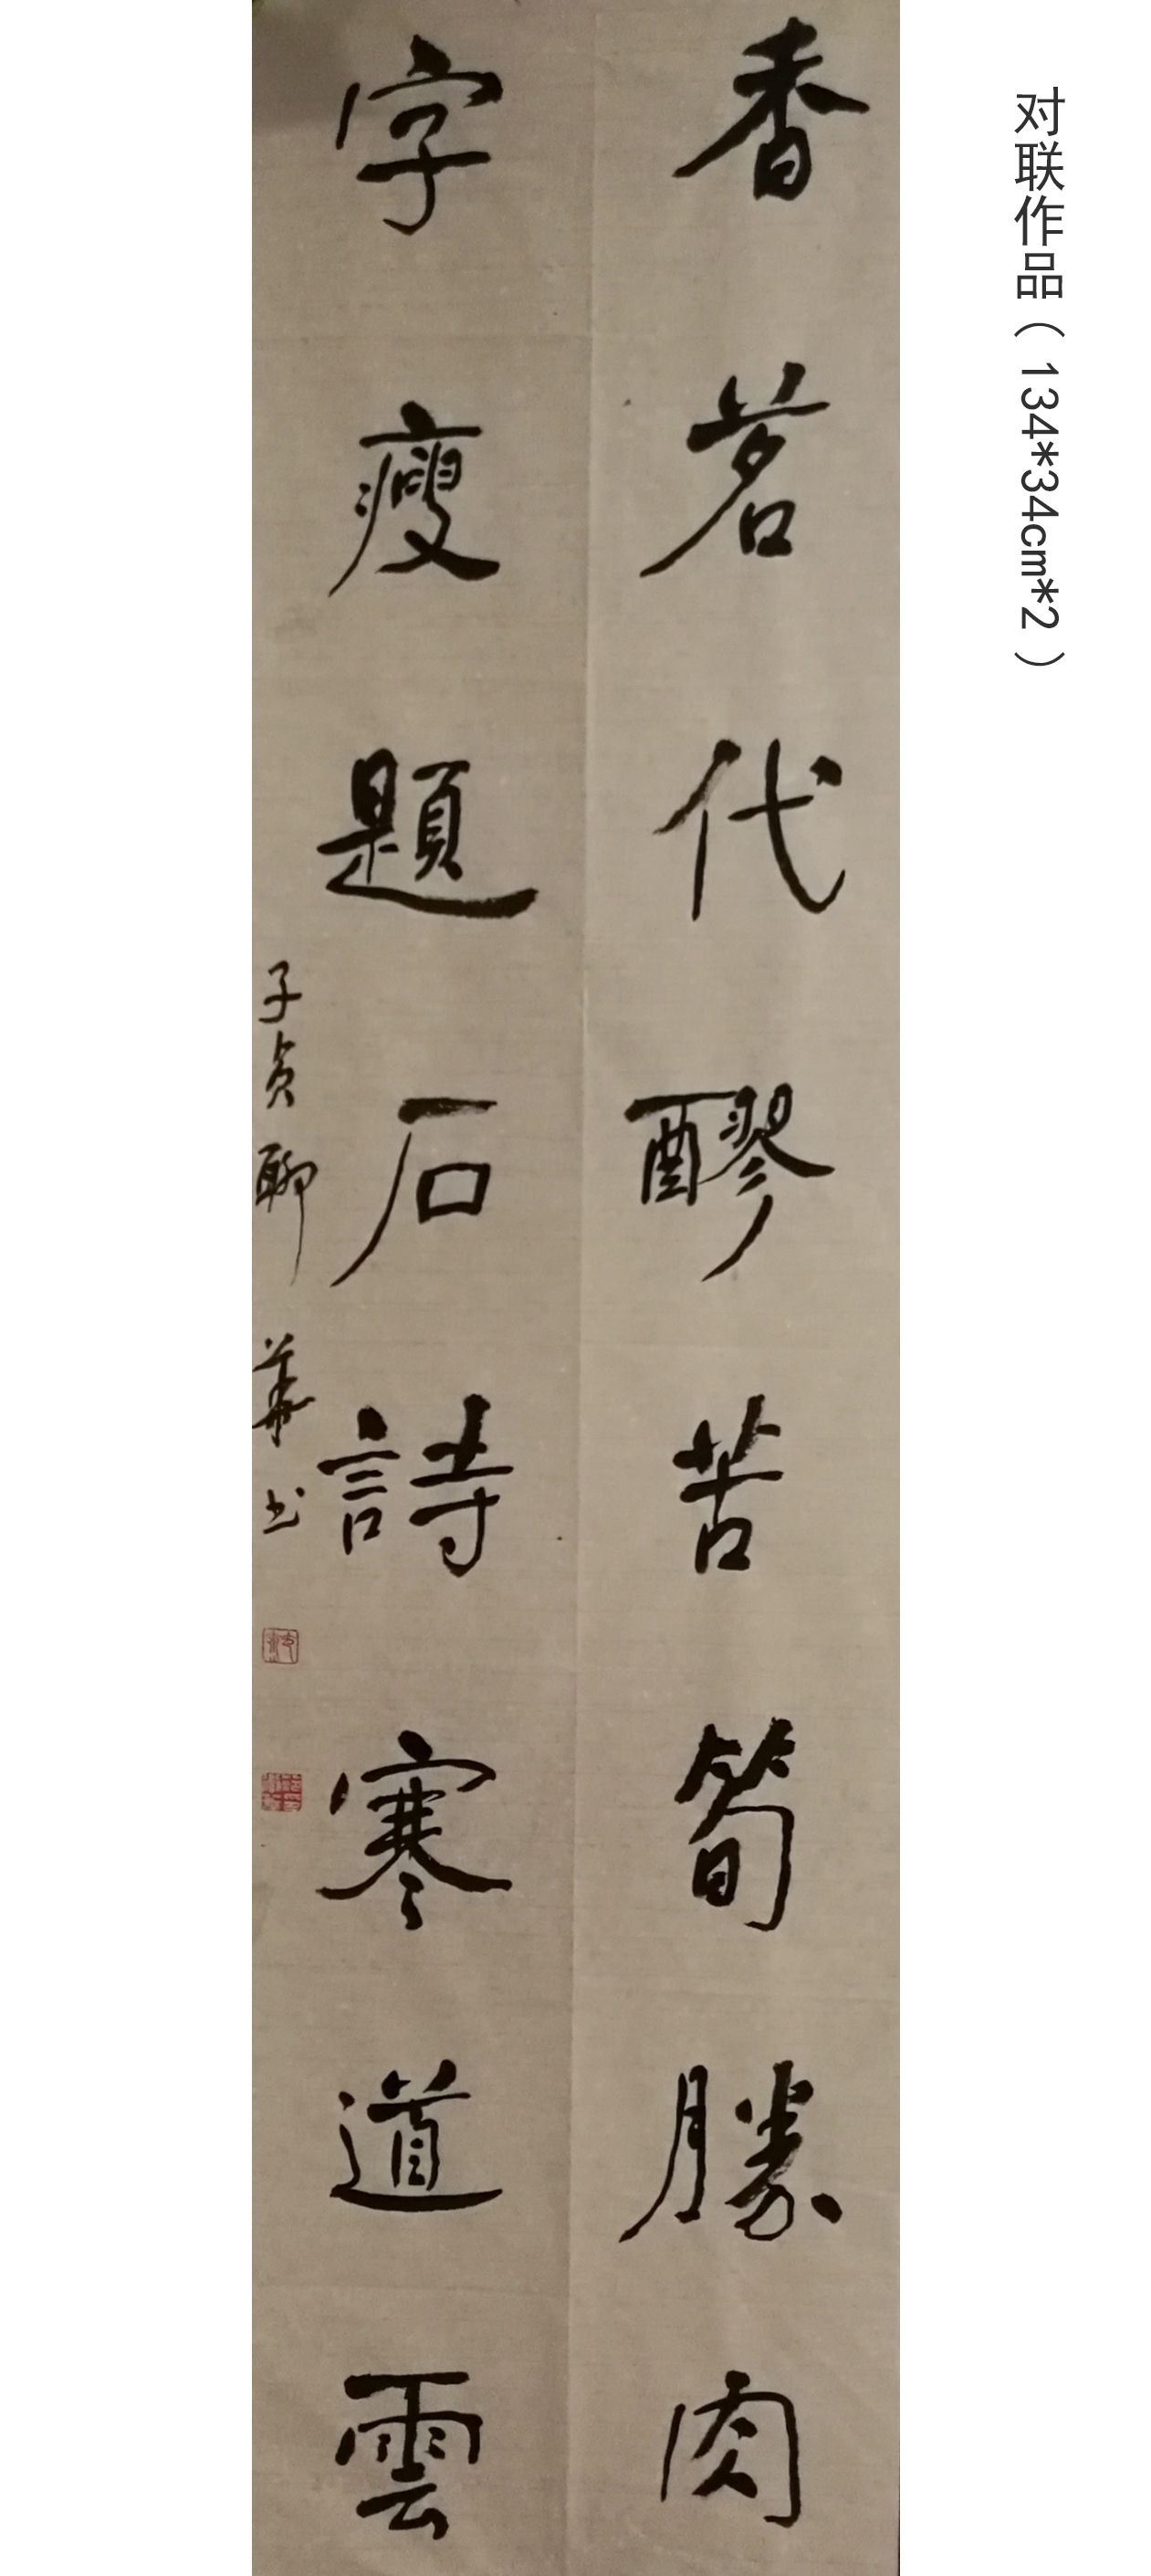 对联作品（134*34cm*2）
香茗代醪苦筍勝肉
字瘦題石詩寒道雲
子貞聊 華书